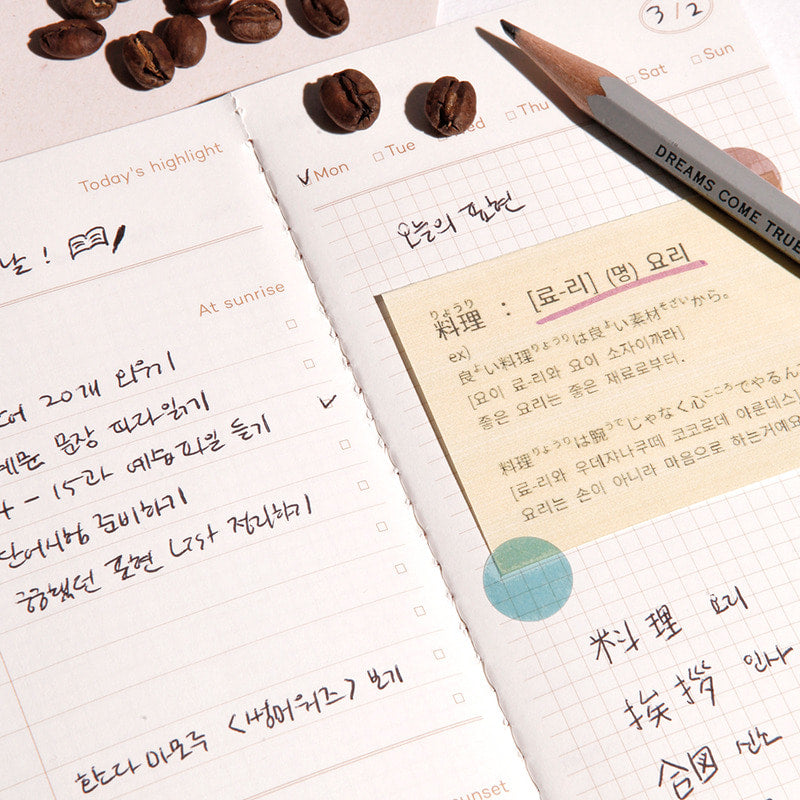 Today's highlight
날!
At sunrise
20개 외우기
문장 따라읽기
- 15과 예습파일 듣기
단어시험 준비하기
궁금했던 표현 List 정리하기
한다 마모루 <썸머워즈> 보기
sunset
3/2
Mon Tue Wed Thu Sat Sun
DREAMS COME TRUE
오늘의 표현
料理りょうり : [료-리] (명) 요리
ex)
良よい料理りょうりは良よい素材そざいから。
[요이 료-리와 요이 소자이까라]
좋은 요리는 좋은 재료로부터.
料理りょうりは腕うでじゃなく心こころでやるん
[료-리와 우데쟈나쿠떼 코코로데 야룬데스]
요리는 손이 아니라 마음으로 하는거예요
料理 요리
挨拶 인사
合図 신호